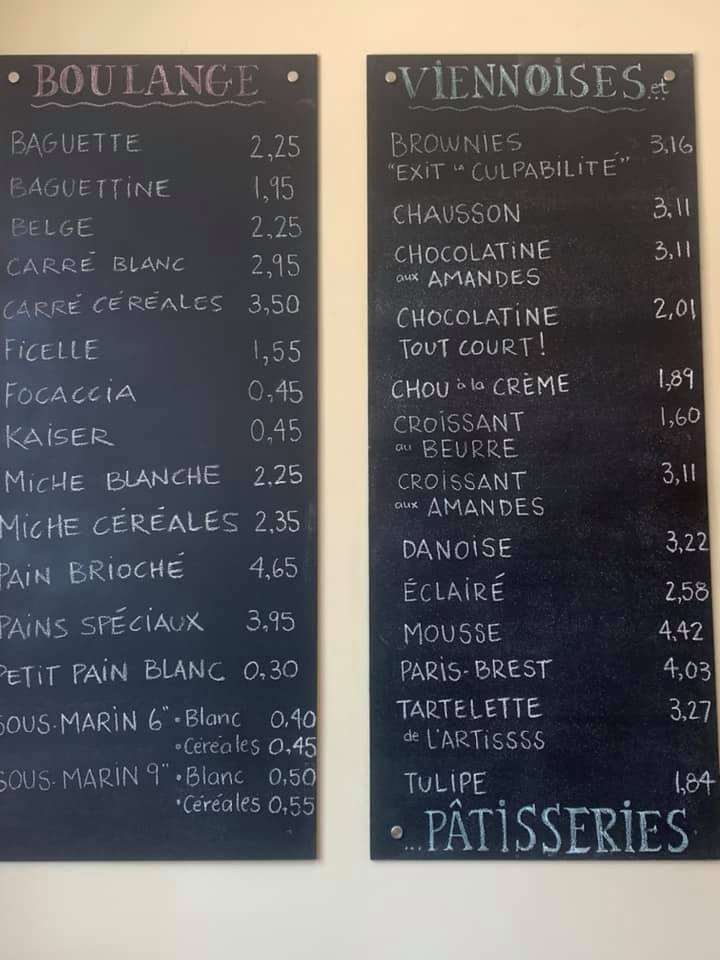 BOULANGE
BAGUETTE 2,25
BAGUETTINE 1,95
BELGE 2,25
CARRÉ BLANC 2,95
CARRÉ CÉRÉALES 3,50
FICELLE 1,55
FOCACCIA 0,45
KAISER 0,45
MICHE BLANCHE 2,25
MICHE CÉRÉALES 2,35
PAIN BRIOCHÉ 4,65
PAINS SPÉCIAUX 3,95
PETIT PAIN BLANC 0,30
SOUS-MARIN 6" • Blanc 0,40
• Céréales 0,45
SOUS-MARIN 9" • Blanc 0,50
• Céréales 0,55
VIENNOISES et...
BROWNIES 3,16
"EXIT la CULPABILITÉ"
CHAUSSON 3,11
CHOCOLATINE 3,11
aux AMANDES
CHOCOLATINE 2,01
TOUT COURT!
CHOU à la CRÈME 1,89
CROISSANT 1,60
au BEURRE
CROISSANT 3,11
aux AMANDES
DANOISE 3,22
ÉCLAIRÉ 2,58
MOUSSE 4,42
PARIS-BREST 4,03
TARTELETTE 3,27
de L'ARTISSSS
TULIPE 1,84
...PÂTISSERIES